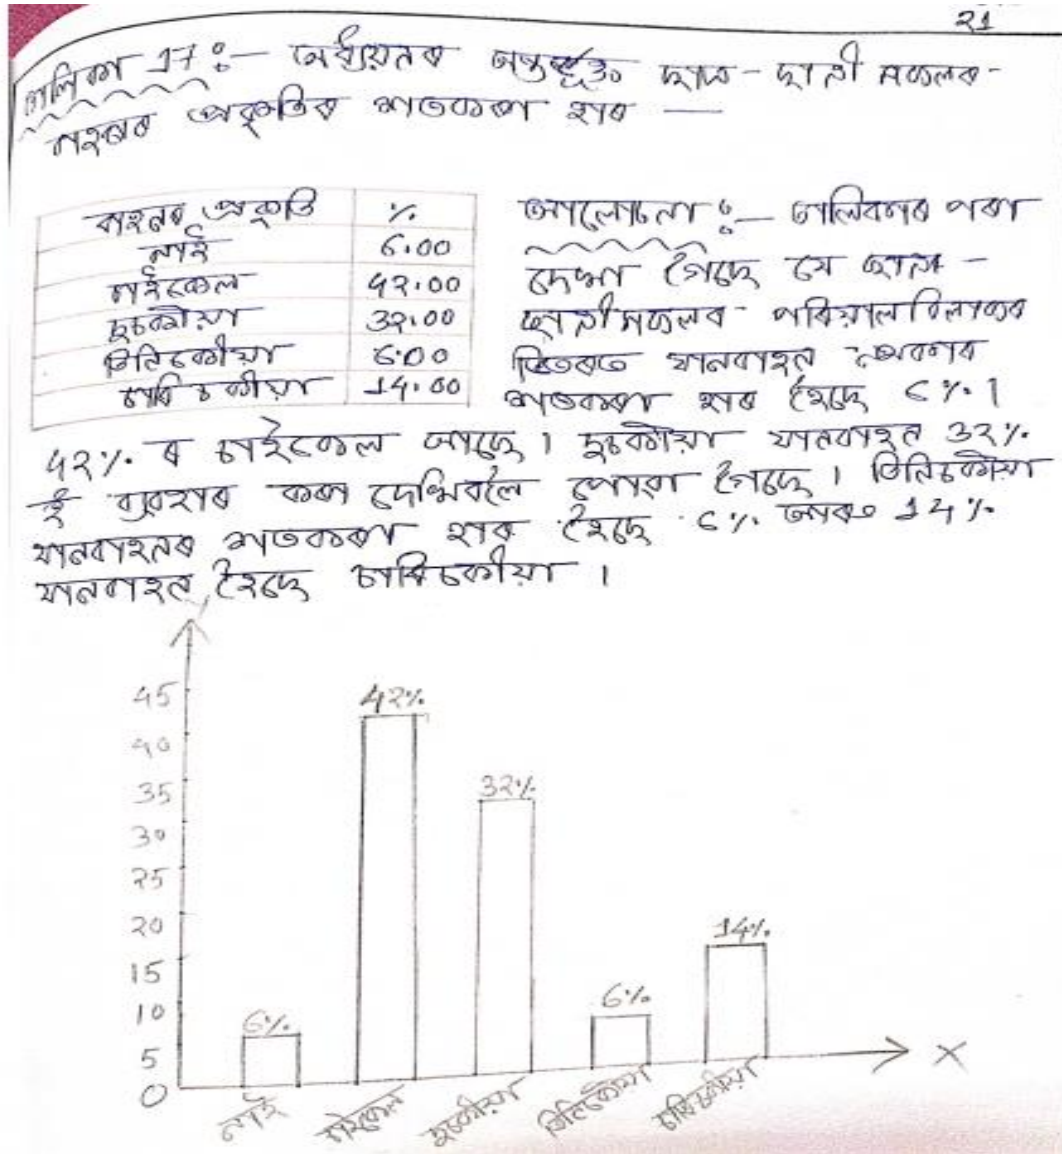 21
তালিকা 17 :— অধ্যয়নৰ অন্তৰ্ভুক্ত ছাত্ৰ-ছাত্ৰী সকলৰ
বাহনৰ প্ৰকৃতিৰ শতকৰা হাৰ —
বাহনৰ প্ৰকৃতি %
নাই 6.00
চাইকেল 42.00
দুচকীয়া 32.00
তিনিচকীয়া 6.00
চাৰি চকীয়া 14.00
আলোচনা :— তালিকাৰ পৰা
দেখা গৈছে যে ছাত্ৰ-
ছাত্ৰীসকলৰ পৰিয়ালবিলাকৰ
ভিতৰত যানবাহন নথকাৰ
শতকৰা হাৰ হৈছে 6%।
42% ৰ চাইকেল আছে। দুচকীয়া যানবাহন 32%
ই ব্যৱহাৰ কৰা দেখিবলৈ পোৱা গৈছে। তিনিচকীয়া
যানবাহনৰ শতকৰা হাৰ হৈছে 6% আৰু 14%
যানবাহন হৈছে চাৰিচকীয়া।
45
40
35
30
25
20
15
10
5
0
6%
42%
32%
6%
14%
X
নাই চাইকেল দুচকীয়া তিনিচকীয়া চাৰিচকীয়া